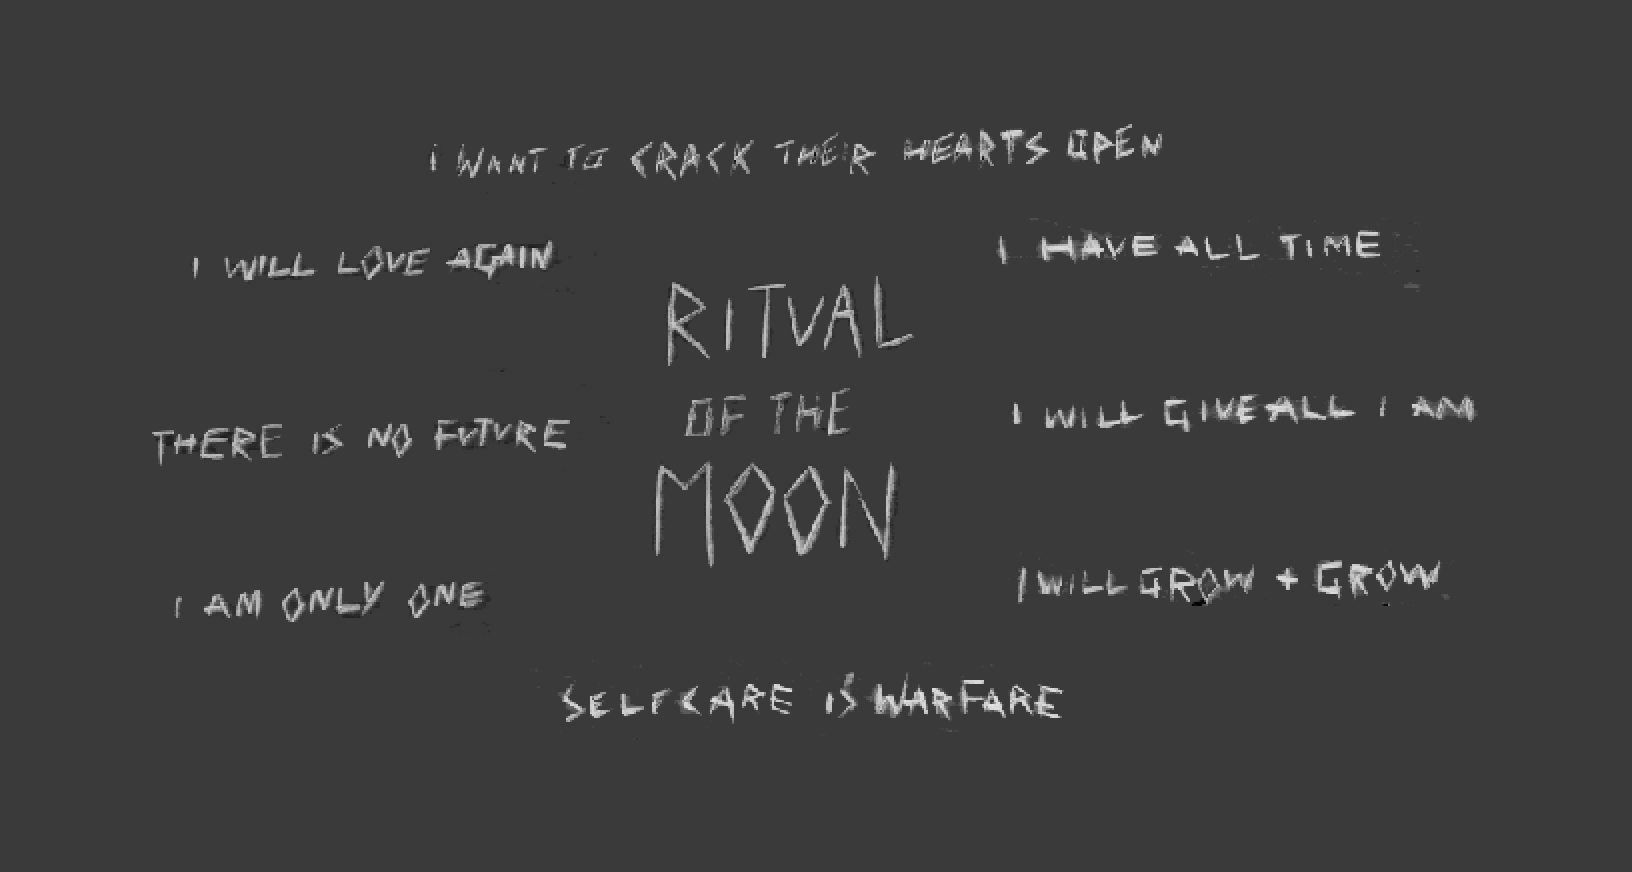 I WANT TO CRACK THEIR HEARTS OPEN
I WILL LOVE AGAIN
I HAVE ALL TIME
RITUAL
OF THE
MOON
THERE IS NO FUTURE
I WILL GIVE ALL I AM
I AM ONLY ONE
I WILL GROW + GROW
SELFCARE IS WARFARE